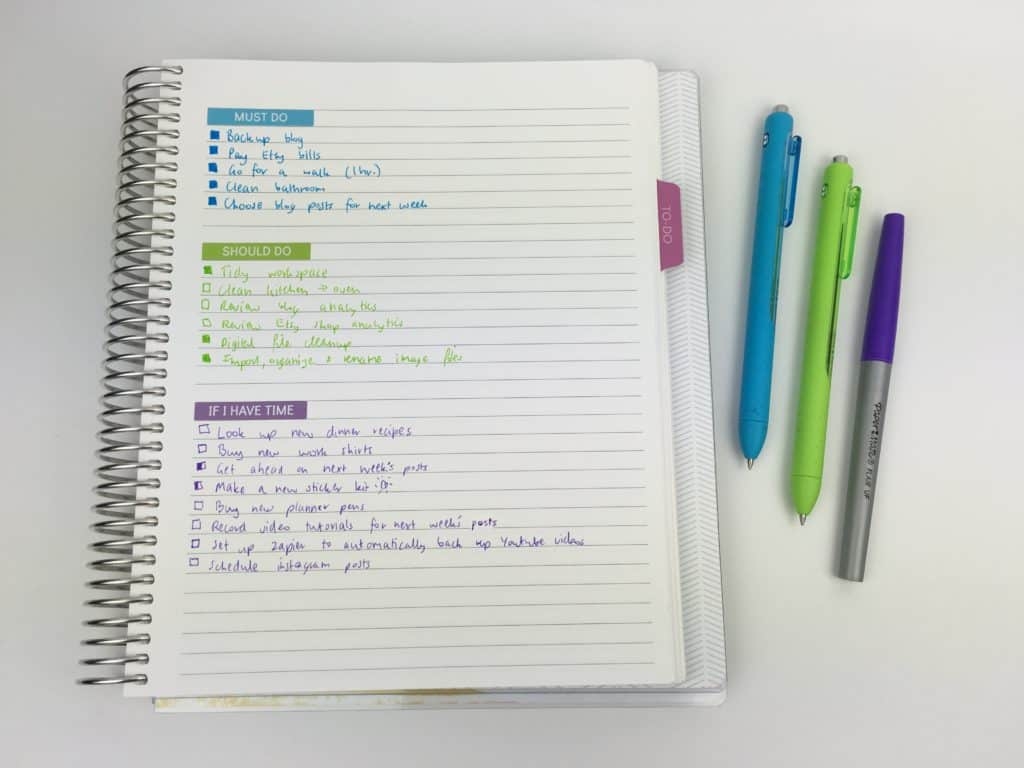 MUST DO
Backup blog
Pay Etsy bills
Go for a walk (1hr.)
Clean bathroom
Choose blog posts for next week
SHOULD DO
Tidy workspace
Clean kitchen → oven
Review blog analytics
Review Etsy shop analytics
Digital file cleanup
Import, organize + rename image files
IF I HAVE TIME
Look up new dinner recipes
Buy new work shirts
Get ahead on next week's posts
Make a new sticker kit
Buy new planner pens
Record video tutorials for next week's posts
Set up Zapier to automatically back up Youtube videos
Schedule instagram posts
TO-DO